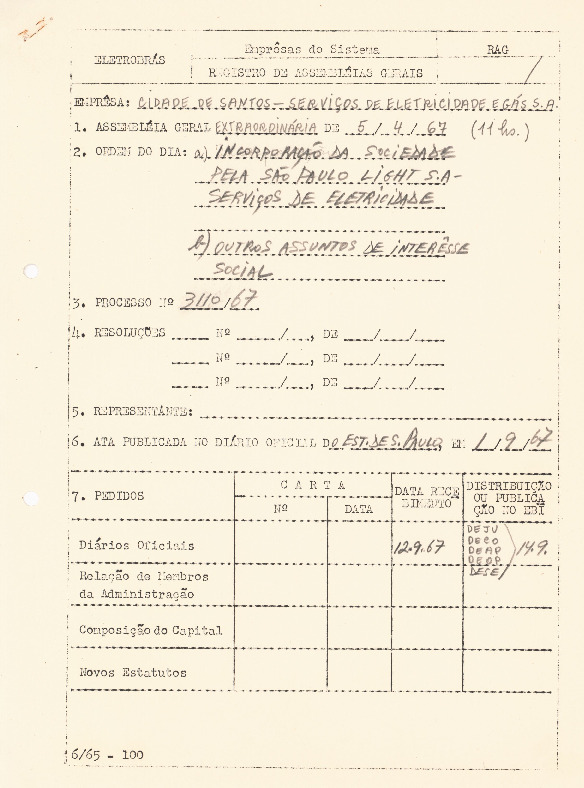 ELETROBRÁS
Emprêsas do Sistema
RAG
REGISTRO DE ASSEMBLÉIAS GERAIS
EMPRÊSA: CIDADE DE SANTOS - SERVIÇOS DE ELETRICIDADE E GÁS S.A.
1. ASSEMBLÉIA GERAL EXTRAORDINÁRIA DE 5/4/67 (11 hs.)
2. ORDEM DO DIA: a) INCORPORAÇÃO DA SOCIEDADE
PELA SÃO PAULO LIGHT S.A-
SERVIÇOS DE ELETRICIDADE
b) OUTROS ASSUNTOS DE INTERÊSSE
SOCIAL
3. PROCESSO Nº 3110/67
4. RESOLUÇÕES _____ Nº _____/___, DE ____/____/____
_____ Nº _____/___, DE ____/____/____
_____ Nº _____/___, DE ____/____/____
5. REPRESENTANTE:
6. ATA PUBLICADA NO DIÁRIO OFICIAL DO EST. DE S. PAULO, EM 1/9/67
7. PEDIDOS
C A R T A
Nº
DATA
DATA RECE
BIMENTO
DISTRIBUIÇÃO
OU PUBLICA
ÇÃO NO EBI
Diários Oficiais
12.9.67
DEJU
DECO
DEAP
DEOP
DESE
14.9.
Relação de Membros
da Administração
Composição do Capital
Novos Estatutos
6/65 - 100